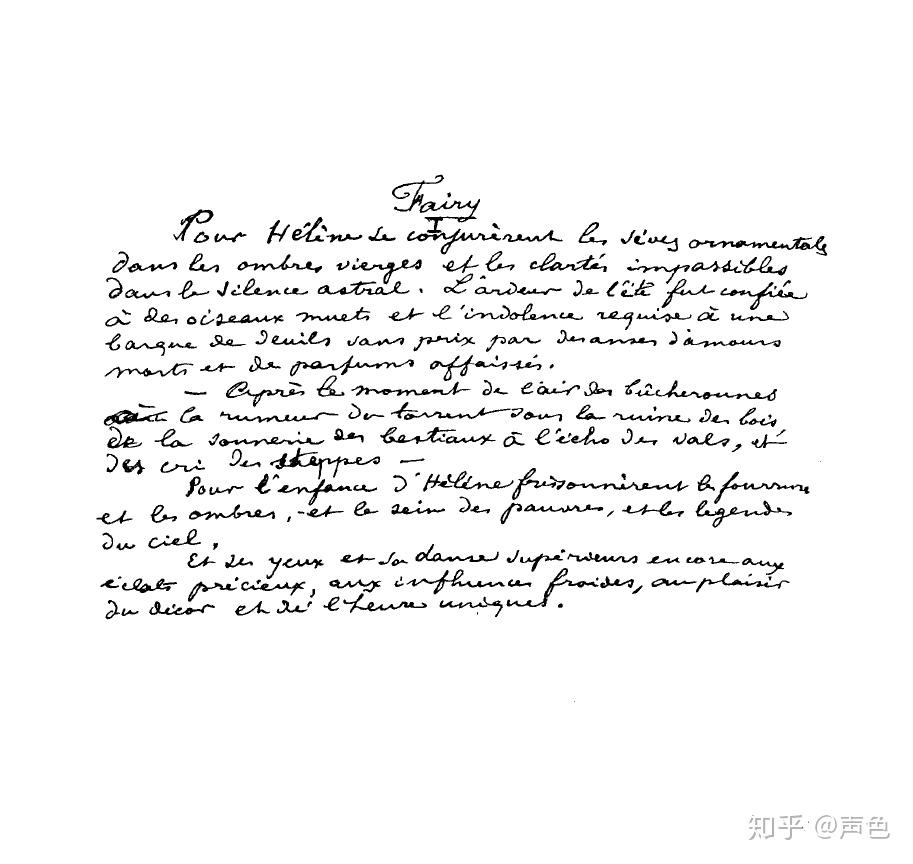 Fairy
I
Pour Hélène se conjurèrent les sèves ornamentales
dans les ombres vierges et les clartés impassibles
dans le silence astral. L'ardeur de l'été fut confiée
à des oiseaux muets et l'indolence requise à une
barque de deuils sans prix par des anses d'amours
morts et de parfums affaissés.
— Après le moment de l'air des bûcheronnes
à la rumeur du torrent sous la ruine des bois,
de la sonnerie des bestiaux à l'écho des vals, et
des cri des steppes —
Pour l'enfance d'Hélène frissonnèrent les fourrures
et les ombres, - et le sein des pauvres, et les légendes
du ciel.
Et ses yeux et sa danse supérieurs encore aux
éclats précieux, aux influences froides, au plaisir
du décor et de l'heure uniques.
知乎 @声色